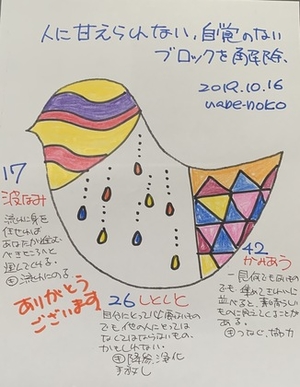 人に甘えられない,自覚のない
ブロックを解除.
2019.10.16
nabe-noko
17
波なみ
流れに身を
任せれば
あなたが進む
べきところへと
運んでくれる.
流れにのる.
ありがとう
ございます
26 しとしと
自分にとって必要ないもの
でも他の人にとっては
なくてはならないもの
かもしれない.
降参,浄化
手放し
42
かみあう
一見何でもないもの
でも集めてきれいに
並べると,素晴らしい
ものに見えてくることが
ある.
つなぐ,協力